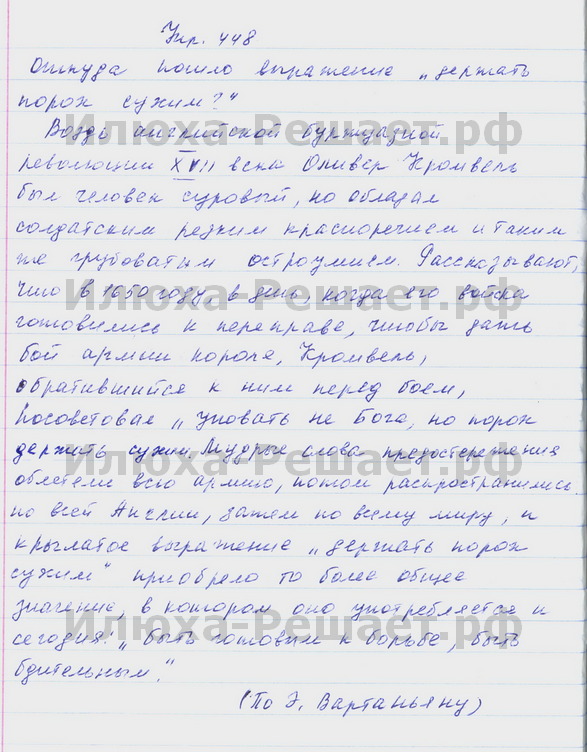 Упр. 448
Откуда пошло выражение „держать
порох сухим?“
Вождь английской буржуазной
революции XVII века Оливер Кромвель
был человек суровый, но обладал
солдатским резким красноречием и таким
же грубоватым остроумием. Рассказывают,
что в 1650 году, в день, когда его войска
готовились к переправе, чтобы дать
бой армии короля, Кромвель,
обратившийся к ним перед боем,
посоветовал „уповать на Бога, но порох
держать сухим. Мудрые слова предостережения
облетели всю армию, потом распространились
по всей Англии, затем по всему миру, и
крылатое выражение „держать порох
сухим“ приобрело то более общее
значение, в котором оно употребляется и
сегодня: „быть готовым к борьбе, быть
бдительным“.
(По Э. Вартаньяну)
Илюха-Решает.рф
Илюха-Решает.рф
Илюха-Решает.рф
Илюха-Решает.рф